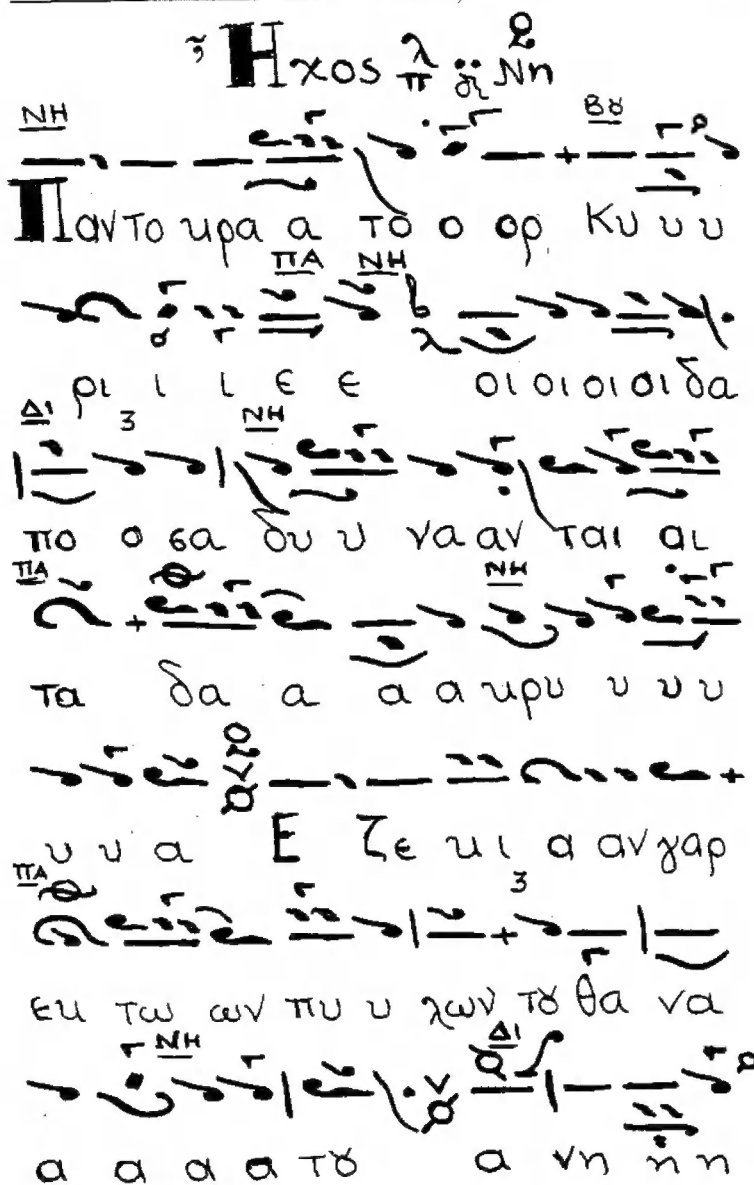 Ἦχος λ π δι Νη
ΝΗ Βȣ
Παντο κρα α το ο ορ Κυ υ υ
ΠΑ ΝΗ
ρι ι ι ε ε οι οι οι οι δα
ΔΙ 3 ΝΗ
πο ο σα δυ υ να αν ται αι
ΠΑ ΝΗ
τα δα α α α κρυ υ υ υ
υ υ α Ε ζε κι α αν γαρ
ΠΑ 3
εκ τω ων πυ υ λων τȣ θα να
ΝΗ ΔΙ
α α α α τȣ α νη η η